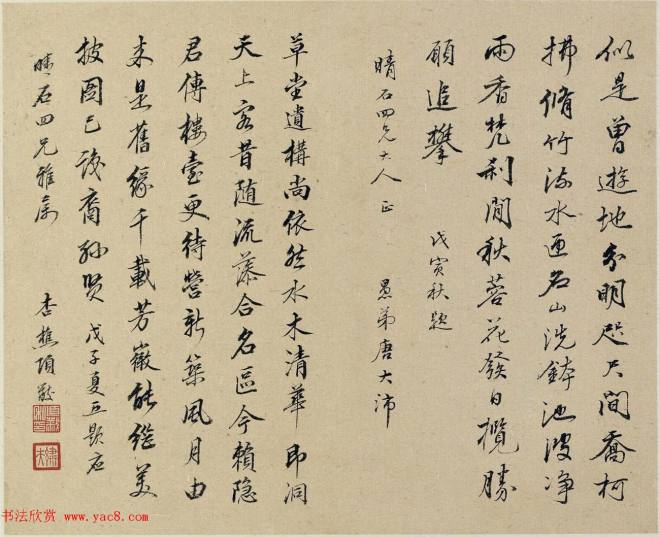 似是曾遊地分明咫尺間喬柯
拂脩竹流水匝名山洗鉢池波淨
雨香梵刹閒秋蓉花發日攬勝
願追攀 戊寅秋題
晴石四兄大人正 愚弟唐大沛
草堂遺構尚依然水木清華即洞
天上客昔随流藻合名區今賴隐
君傳樓臺更待營新築風月由
来是舊緣千載芳徽能繼美
披圖已識裔孫賢 戊子夏五題應
晴石四兄雅屬 杏樵項
书法欣赏 www.yac8.com